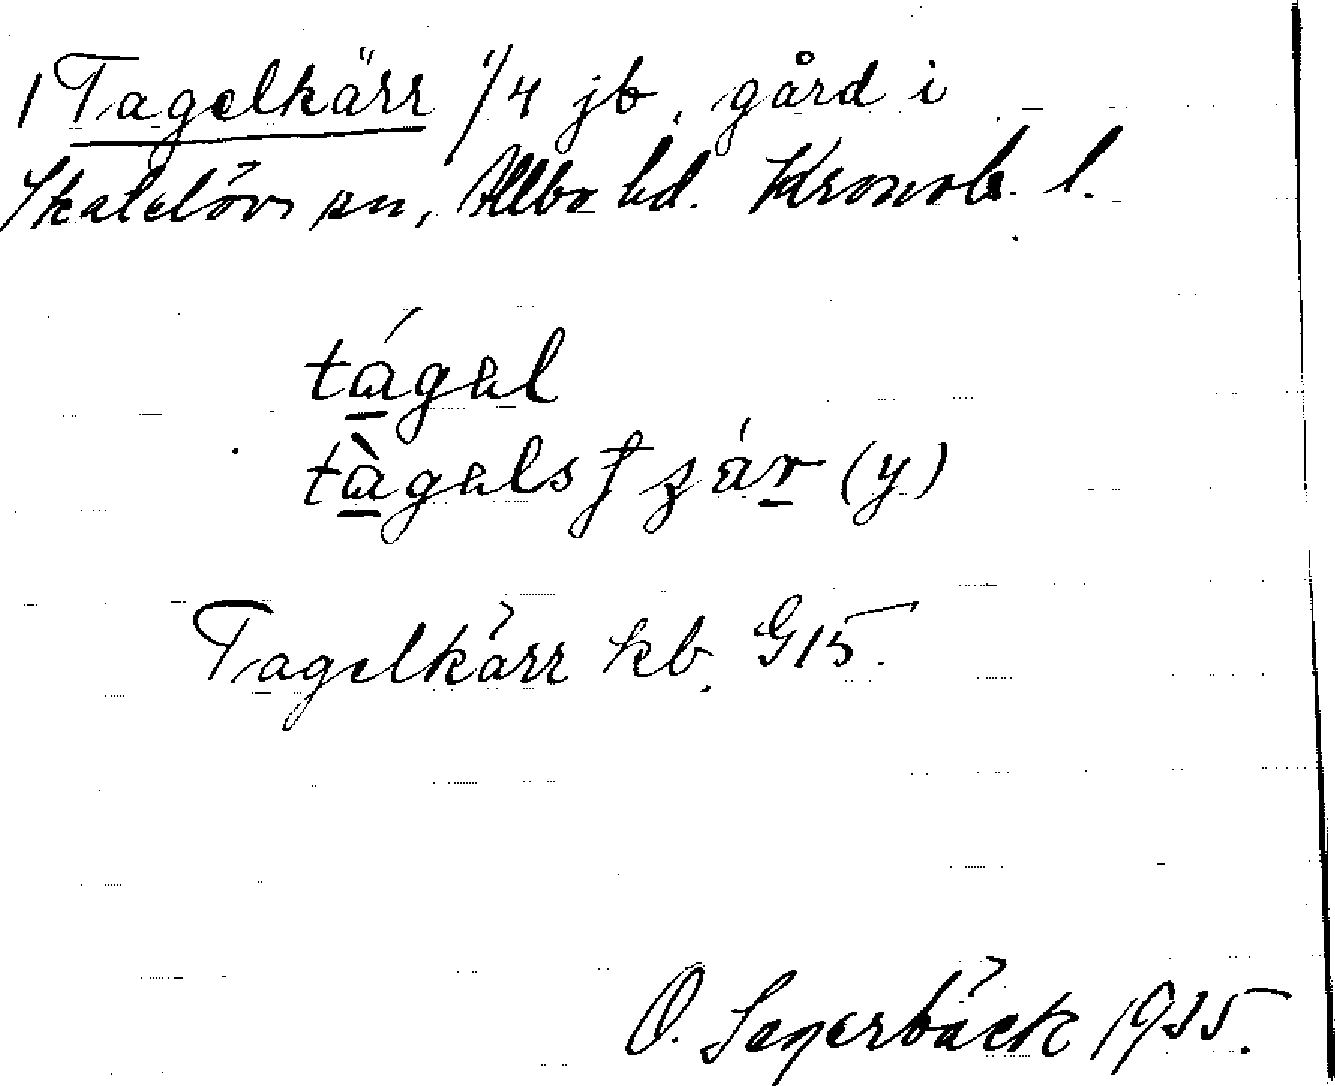 1 Tagelkärr 1/4 jb. gård i
Skatelövs sn, Allbo hd. Kronob. l.
tágəl
tàgəls
Tagelkärr kb. G15.
O. Segerbäck 1935.